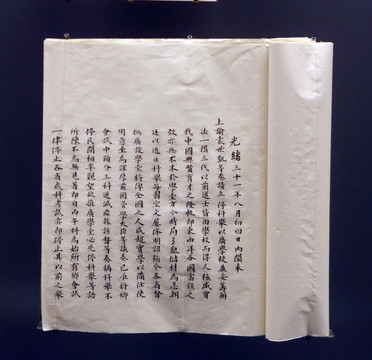 光緒三十一年八月初四日內閣奉
上諭袁世凱等奏請立停科舉以廣學校並妥籌辦
法一摺三代以前選士皆由學校而得人極盛實
我中國興賢育才之隆軌即東西洋各國富強之
效亦無不本於學堂方今時局多艱儲材為急朝
廷以近日科舉每習空文屢降明詔飭令各省督
撫廣設學堂將俾全國之人咸趨實學以備任使
用意至為深厚前因管學大臣等議奏已准將鄉
會試中額分三科遞減茲據該督等奏稱科舉不
停民間相率觀望欲推廣學堂必先停科舉等語
所陳不為無見著即自丙午科為始所有鄉會試
一律停止各省歲科考試亦即停止其以前之舉